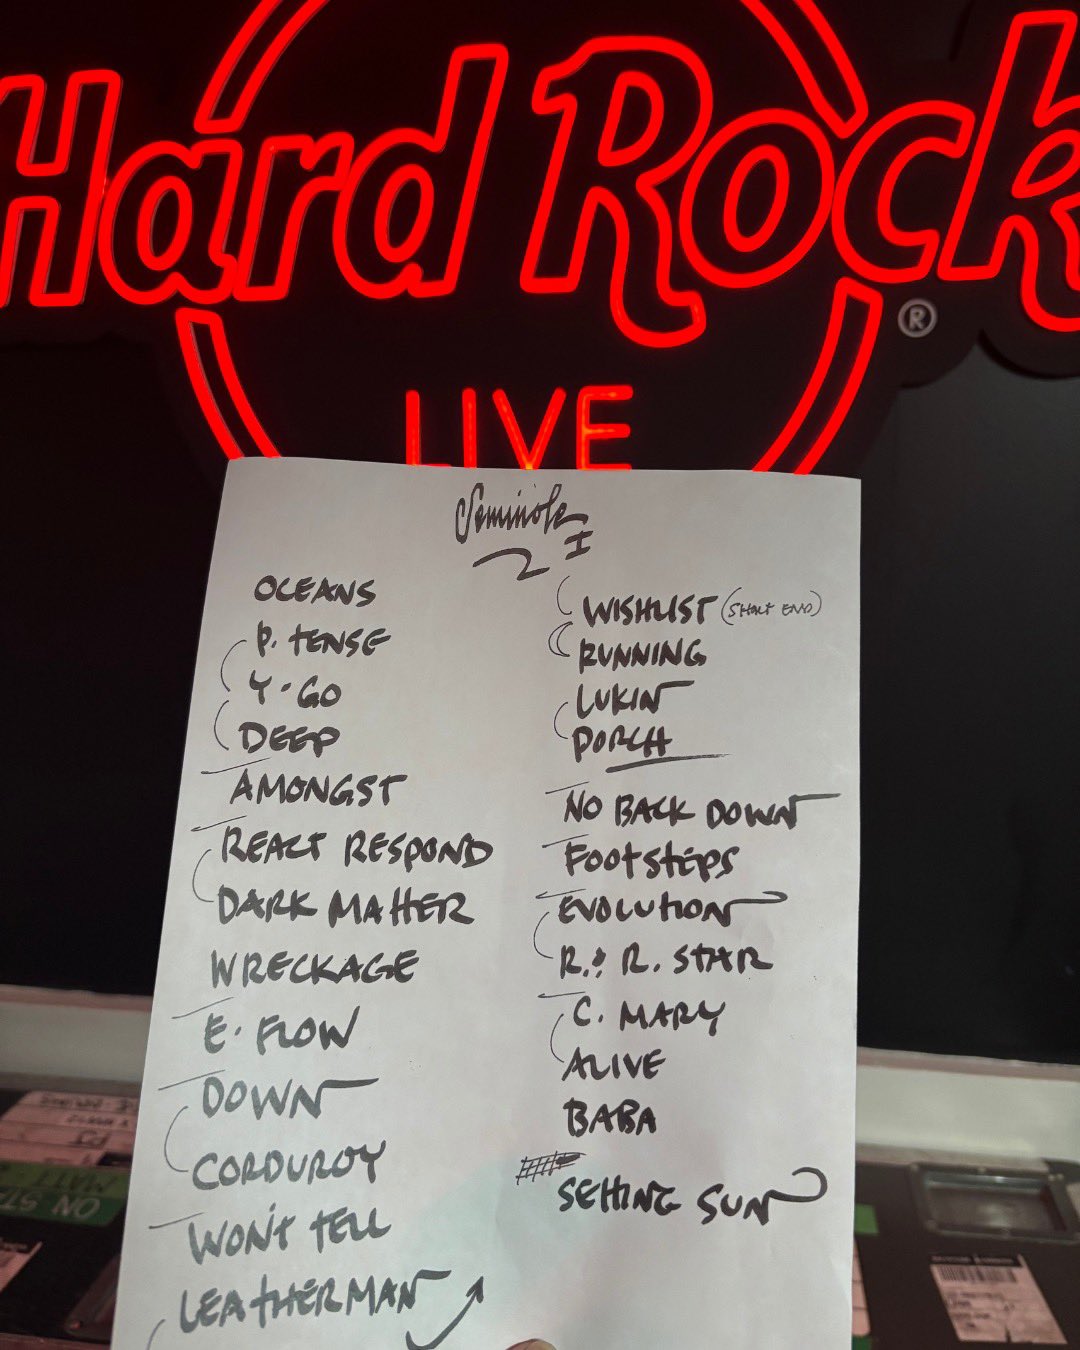 Hard Rock
®
LIVE
Seminole
I
OCEANS
P. TENSE
Y. GO
DEEP
AMONGST
REACT RESPOND
DARK MATTER
WRECKAGE
E. FLOW
DOWN
CORDUROY
WON'T TELL
LEATHERMAN
WISHLIST (SHORT END)
RUNNING
LUKIN
PORCH
NO BACK DOWN
FOOTSTEPS
EVOLUTION
R. & R. STAR
C. MARY
ALIVE
BABA
SETTING SUN
ON STA
MATT